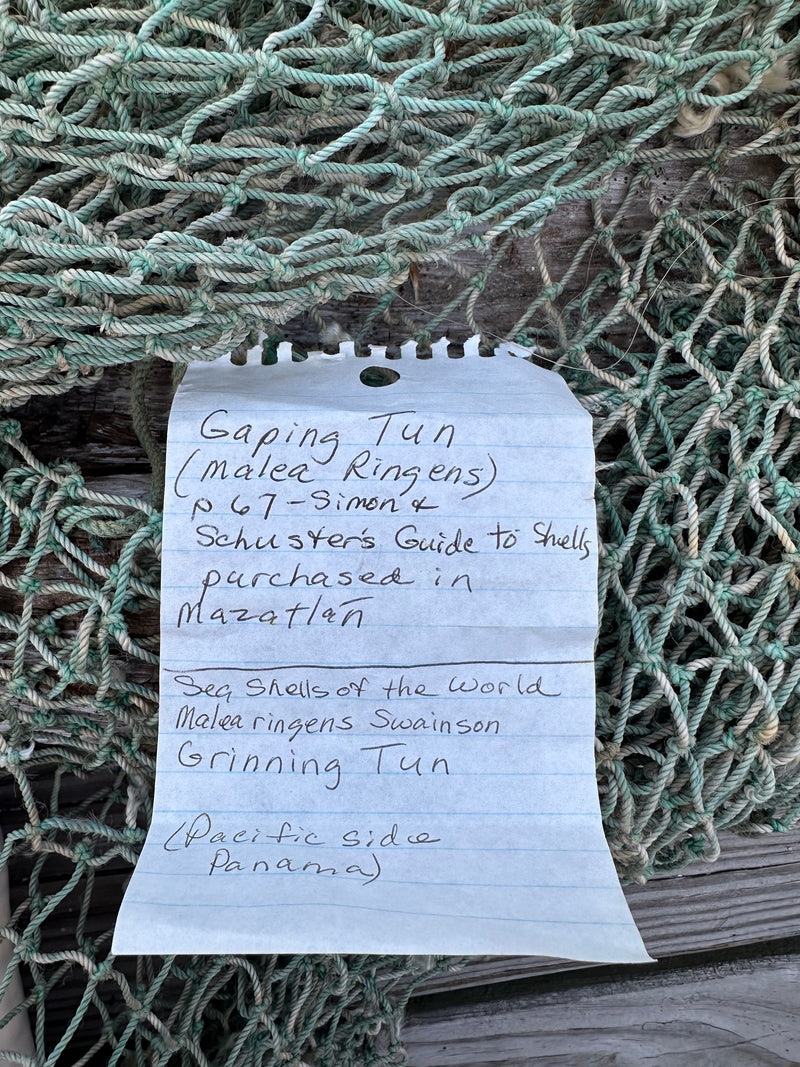 Gaping Tun
(Malea Ringens)
p 67 - Simon &
Schuster's Guide to Shells
purchased in
Mazatlañ
Sea Shells of the World
Malea ringens Swainson
Grinning Tun
(Pacific side
Panama)